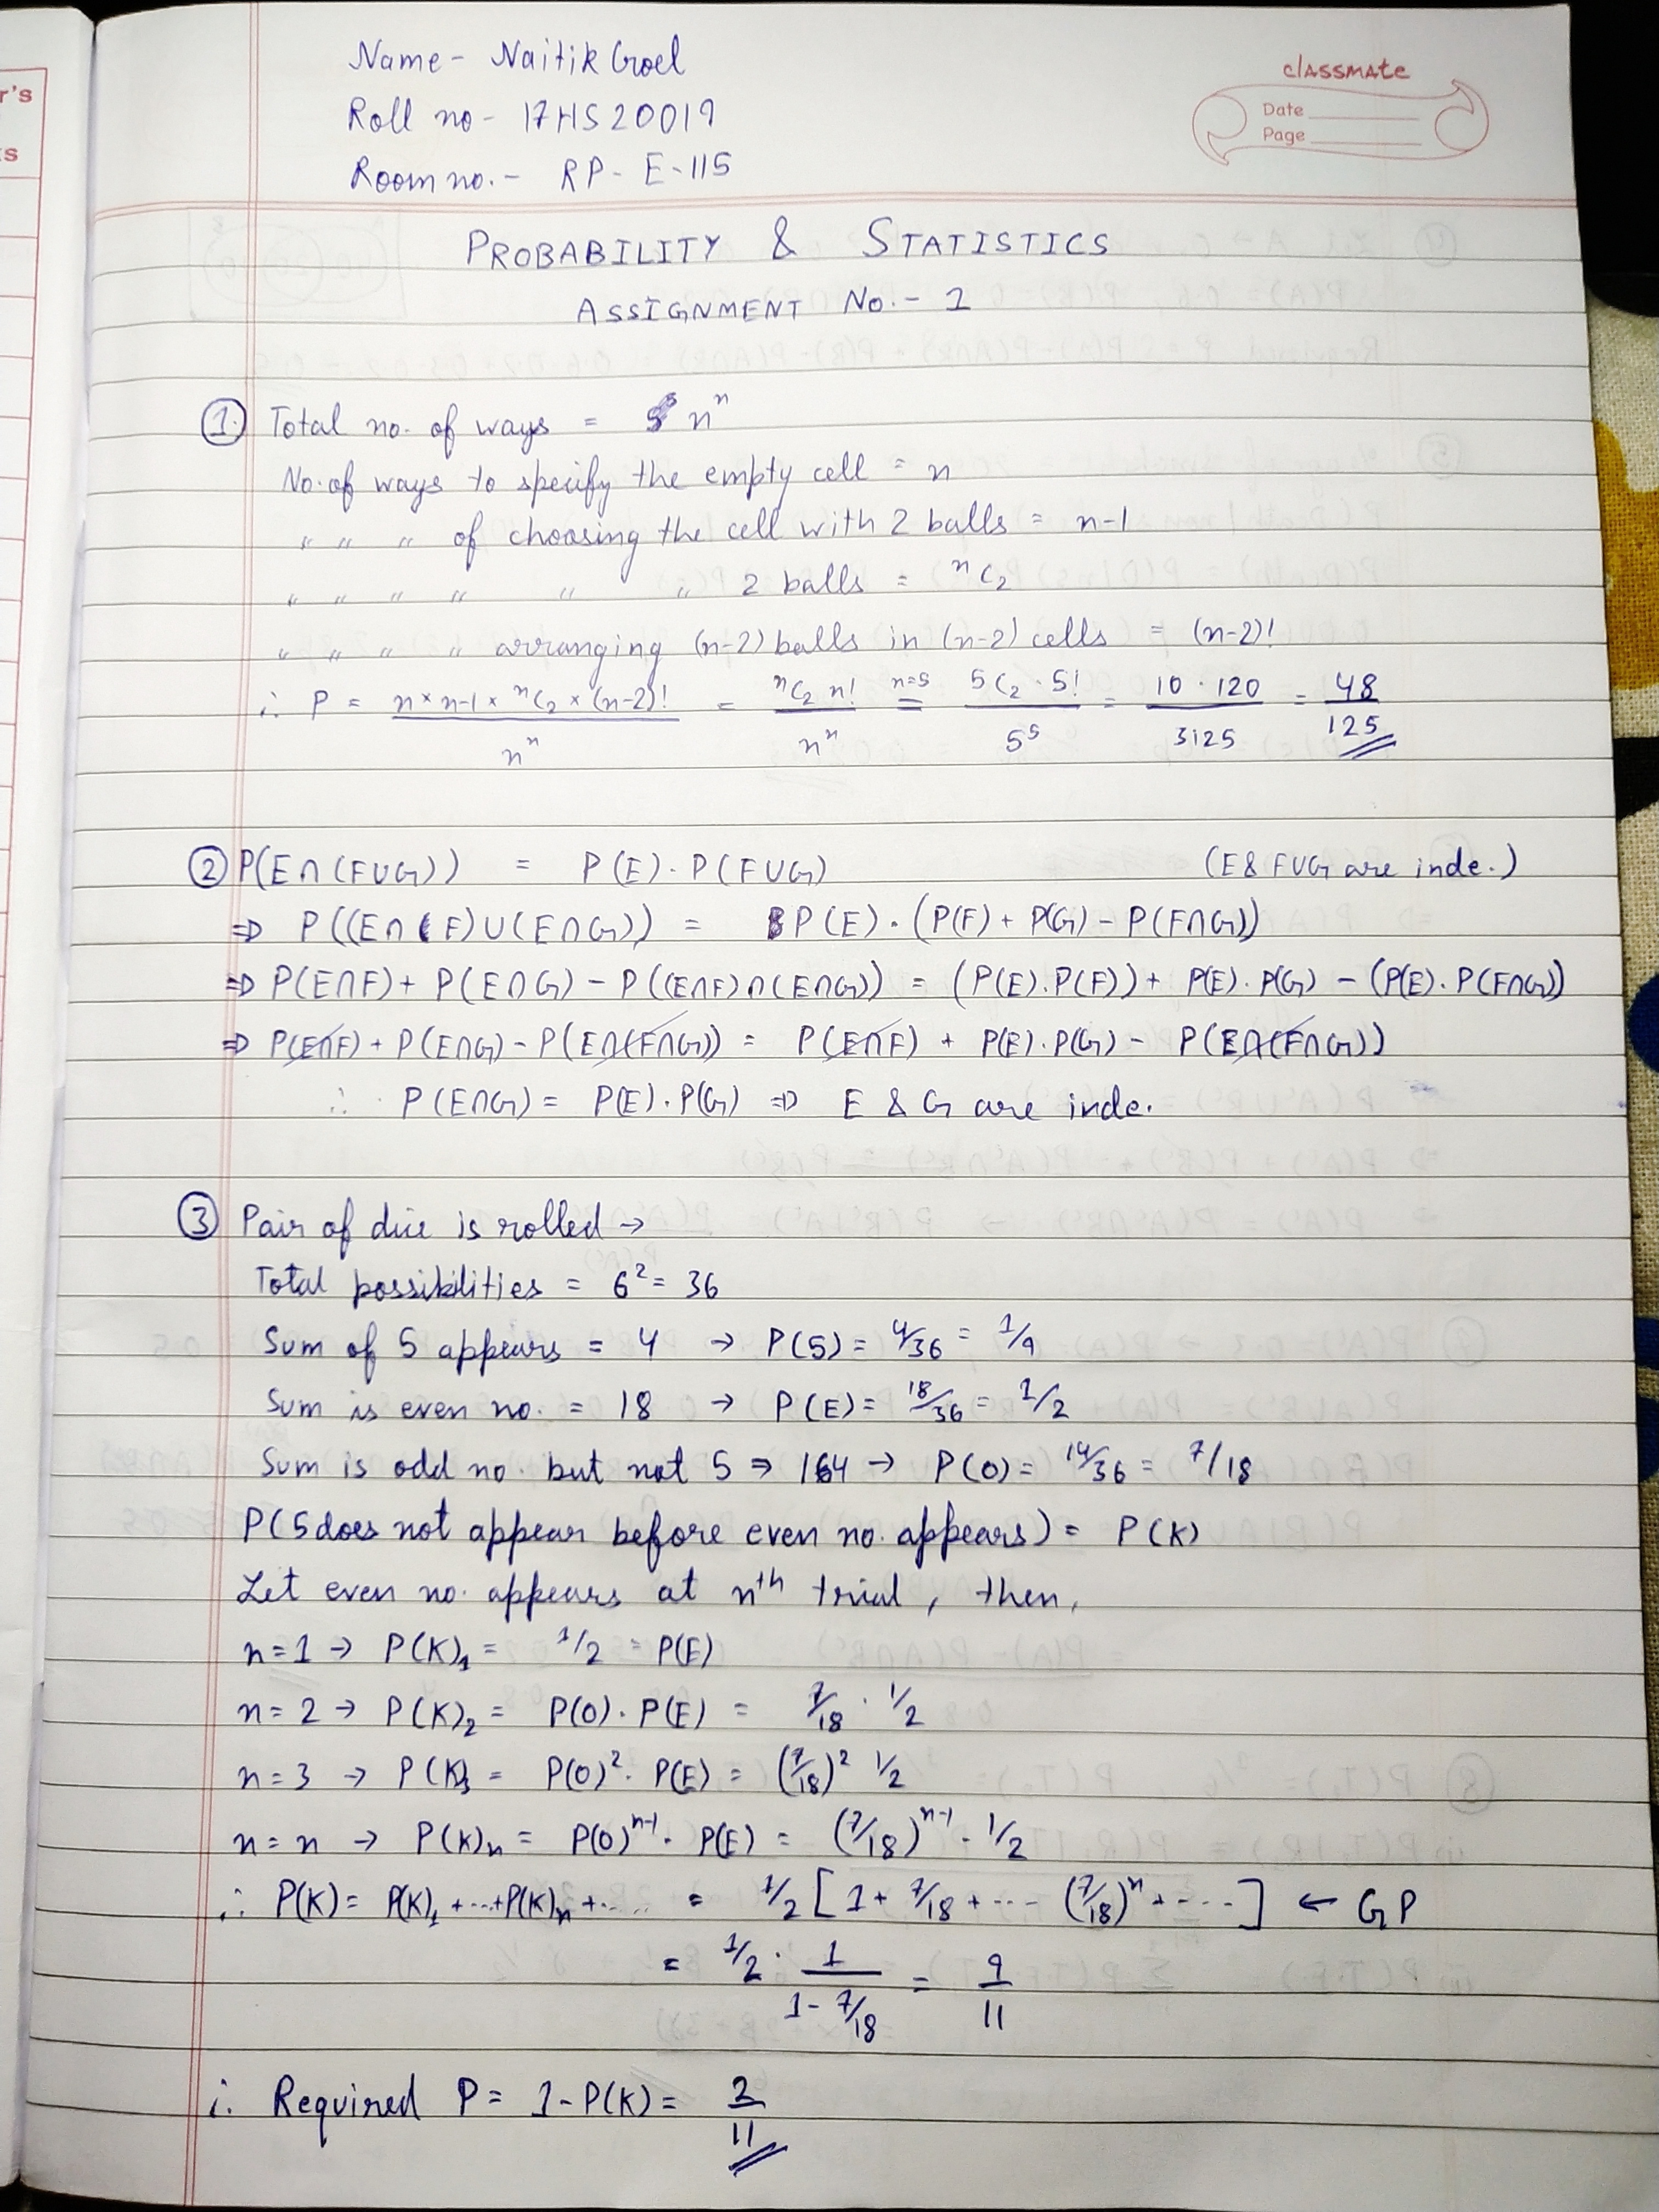 r's
s
Name - Naitik Goel
Roll no - 17HS20019
Room no. - RP - E-115
classmate
Date
Page
PROBABILITY & STATISTICS
ASSIGNMENT No. - 1
① Total no. of ways = nⁿ
No. of ways to specify the empty cell = n
〃 〃 〃 of choosing the cell with 2 balls = n-1
〃 〃 〃 〃 〃 〃 2 balls = ⁿC₂
〃 〃 〃 〃 arranging (n-2) balls in (n-2) cells = (n-2)!
∴ P = n × n-1 × ⁿC₂ × (n-2)! / nⁿ = ⁿC₂ n! / nⁿ n=5 = 5C₂ · 5! / 5⁵ = 10 · 120 / 3125 = 48 / 125
② P(E∩(F∪G)) = P(E) · P(F∪G) (E & F∪G are inde.)
⇒ P((E∩F)∪(E∩G)) = P(E) · (P(F) + P(G) - P(F∩G))
⇒ P(E∩F) + P(E∩G) - P((E∩F)∩(E∩G)) = (P(E).P(F)) + P(E).P(G) - (P(E).P(F∩G))
⇒ P(E∩F) + P(E∩G) - P(E∩(F∩G)) = P(E∩F) + P(E).P(G) - P(E∩(F∩G))
∴ P(E∩G) = P(E).P(G) ⇒ E & G are inde.
③ Pair of dice is rolled →
Total possibilities = 6² = 36
Sum of 5 appears = 4 → P(5) = 4/36 = 1/9
Sum is even no. = 18 → P(E) = 18/36 = 1/2
Sum is odd no. but not 5 ⇒ 14 → P(O) = 14/36 = 7/18
P(5 does not appear before even no. appears) = P(K)
Let even no. appears at nᵗʰ trial, then,
n=1 → P(K)₁ = 1/2 = P(E)
n=2 → P(K)₂ = P(O). P(E) = 7/18 · 1/2
n=3 → P(K)₃ = P(O)². P(E) = (7/18)² 1/2
n=n → P(K)ₙ = P(O)ⁿ⁻¹. P(E) = (7/18)ⁿ⁻¹ · 1/2
∴ P(K) = P(K)₁ + ...+P(K)ₙ+... = 1/2 [1 + 7/18 + ... (7/18)ⁿ + ...] ← GP
= 1/2 · 1 / 1 - 7/18 = 9 / 11
∴ Required P = 1 - P(K) = 2 / 11